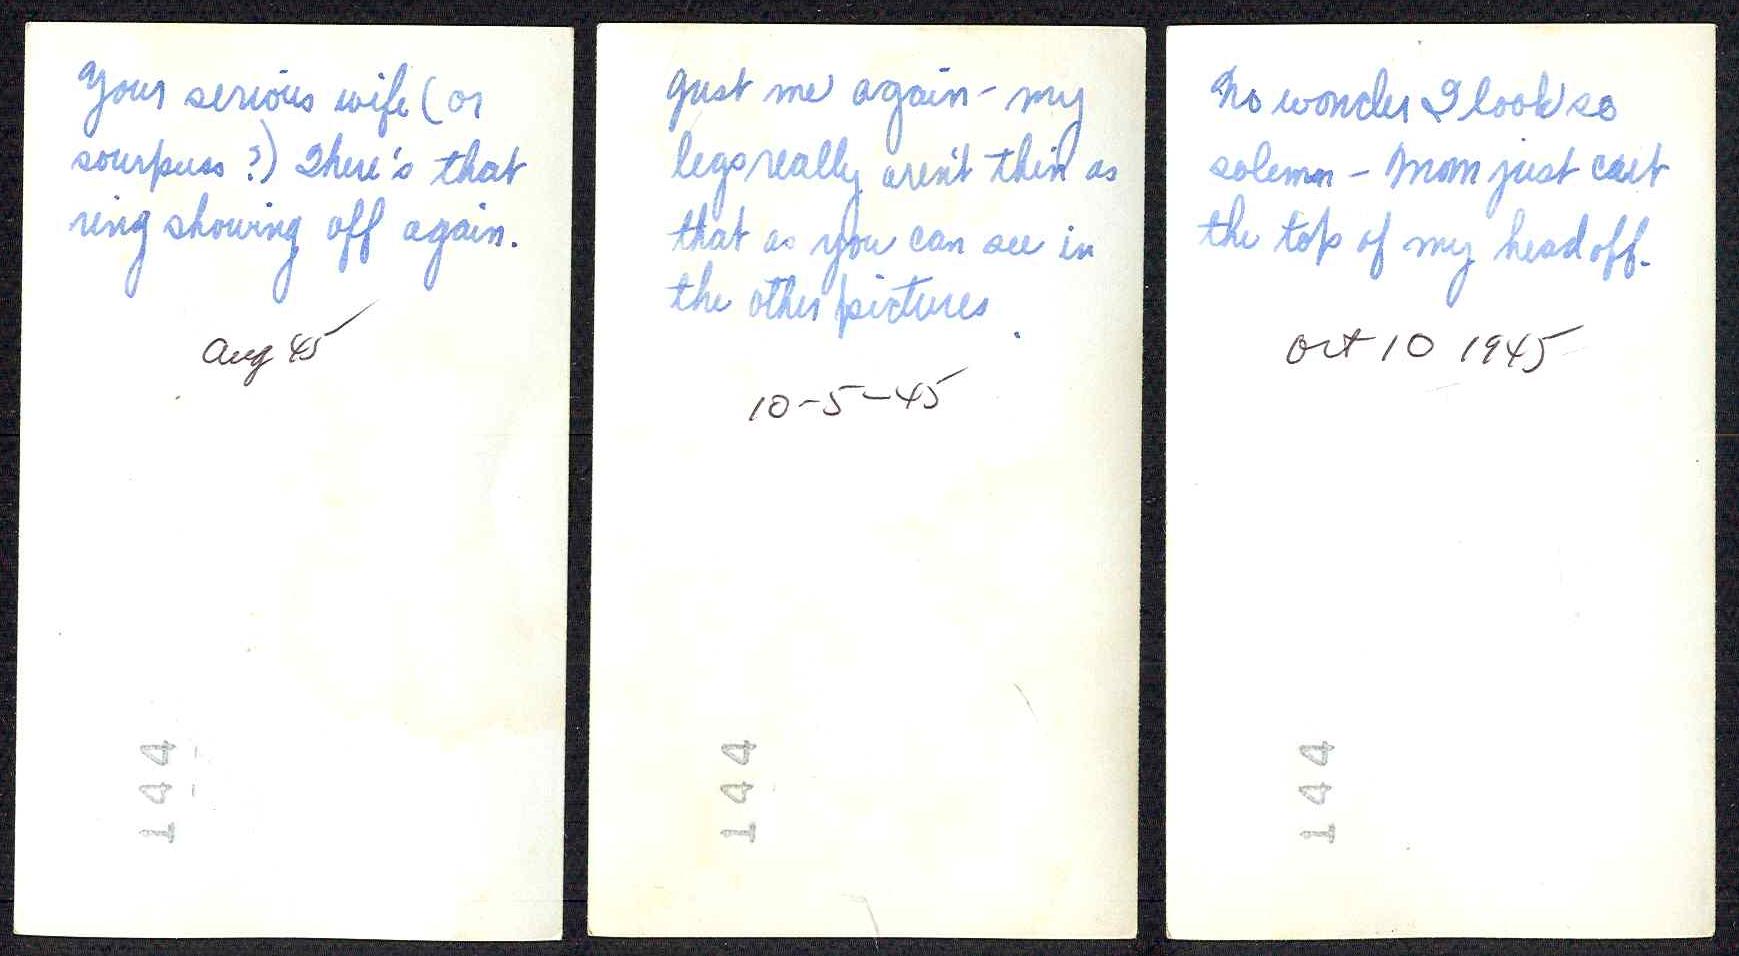 Your serious wife (or
sourpuss?) There's that
ring showing off again.
Aug 45
144
Just me again - my
legs really aren't thin as
that as you can see in
the other pictures.
10-5-45
144
No wonder I look so
solemn - Mom just cut
the top of my head off.
Oct 10 1945
144